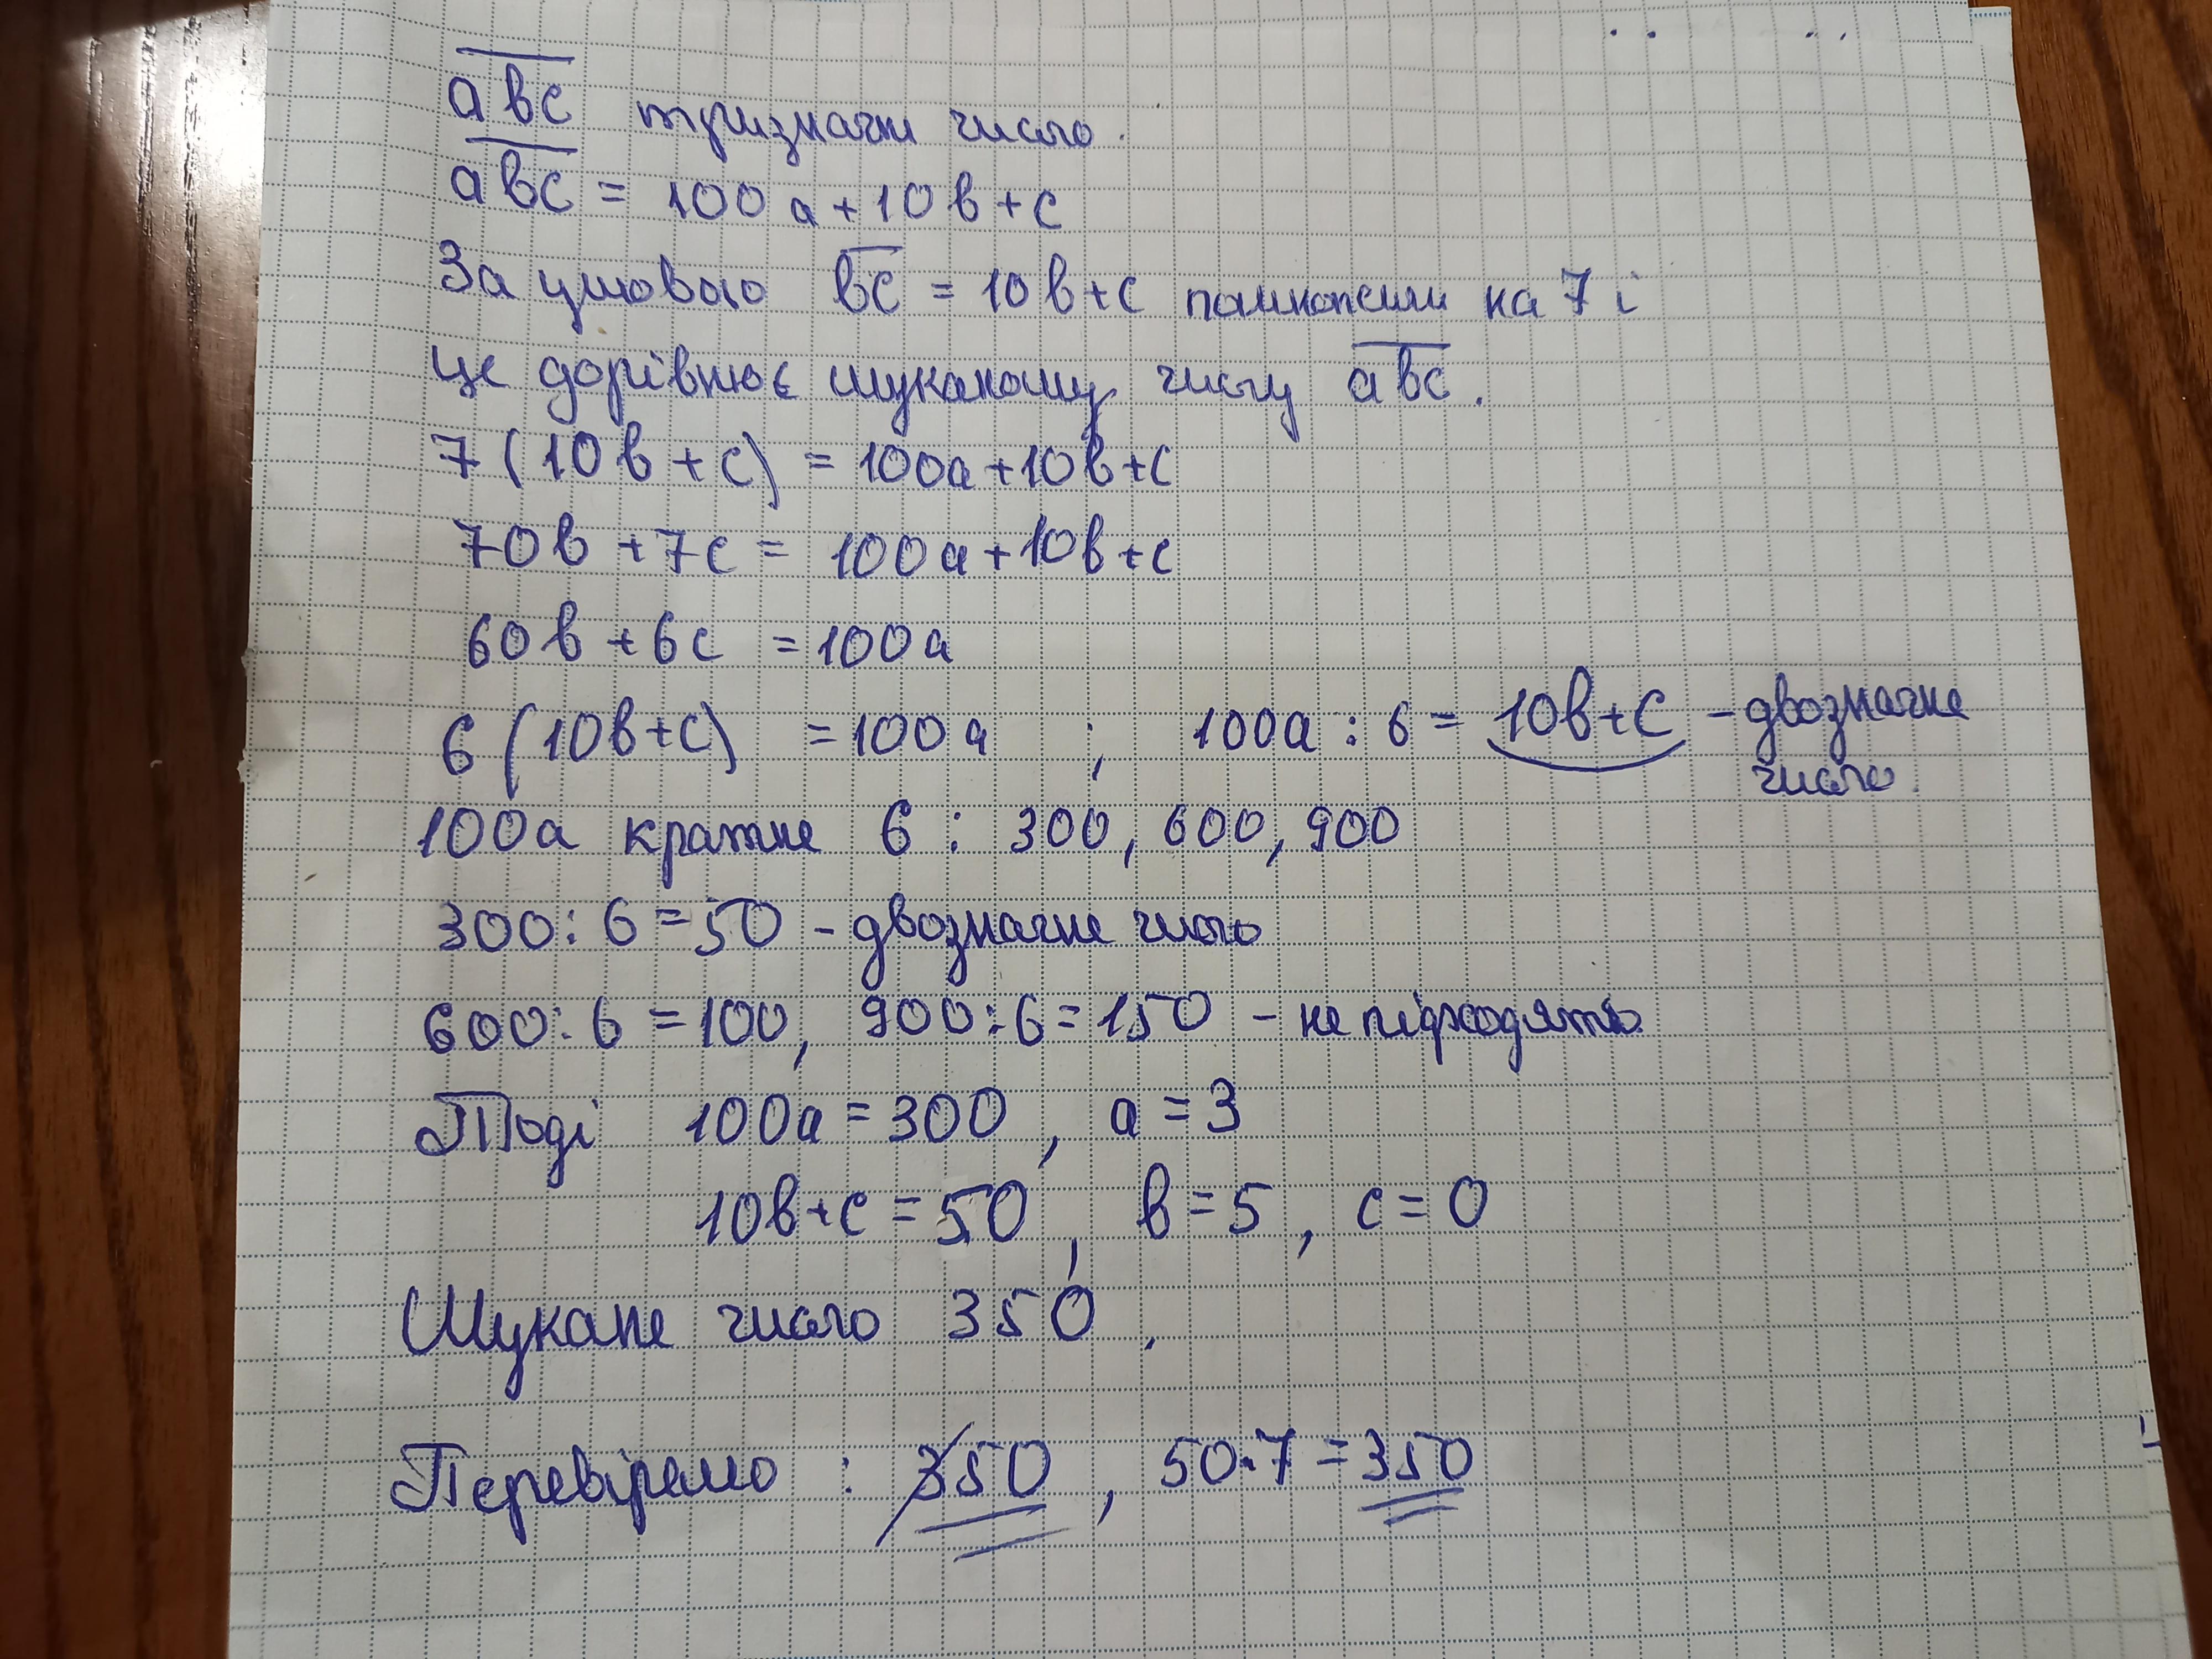 a̅b̅c̅ тризначне число.
a̅b̅c̅ = 100a+10b+c
За умовою b̅c̅ = 10b+c помножили на 7 і
це дорівнює шуканому числу a̅b̅c̅.
7(10b+c) = 100a+10b+c
70b+7c = 100a+10b+c
60b+6c = 100a
6(10b+c) = 100a ; 100a : 6 = 10b+c – двозначне
число.
100a кратне 6 : 300, 600, 900
300 : 6 = 50 – двозначне число
600 : 6 = 100, 900 : 6 = 150 – не підходять.
Тоді 100a = 300, a = 3
10b+c = 50, b = 5, c = 0
Шукане число 350.
Перевіремо : 350, 50·7 = 350